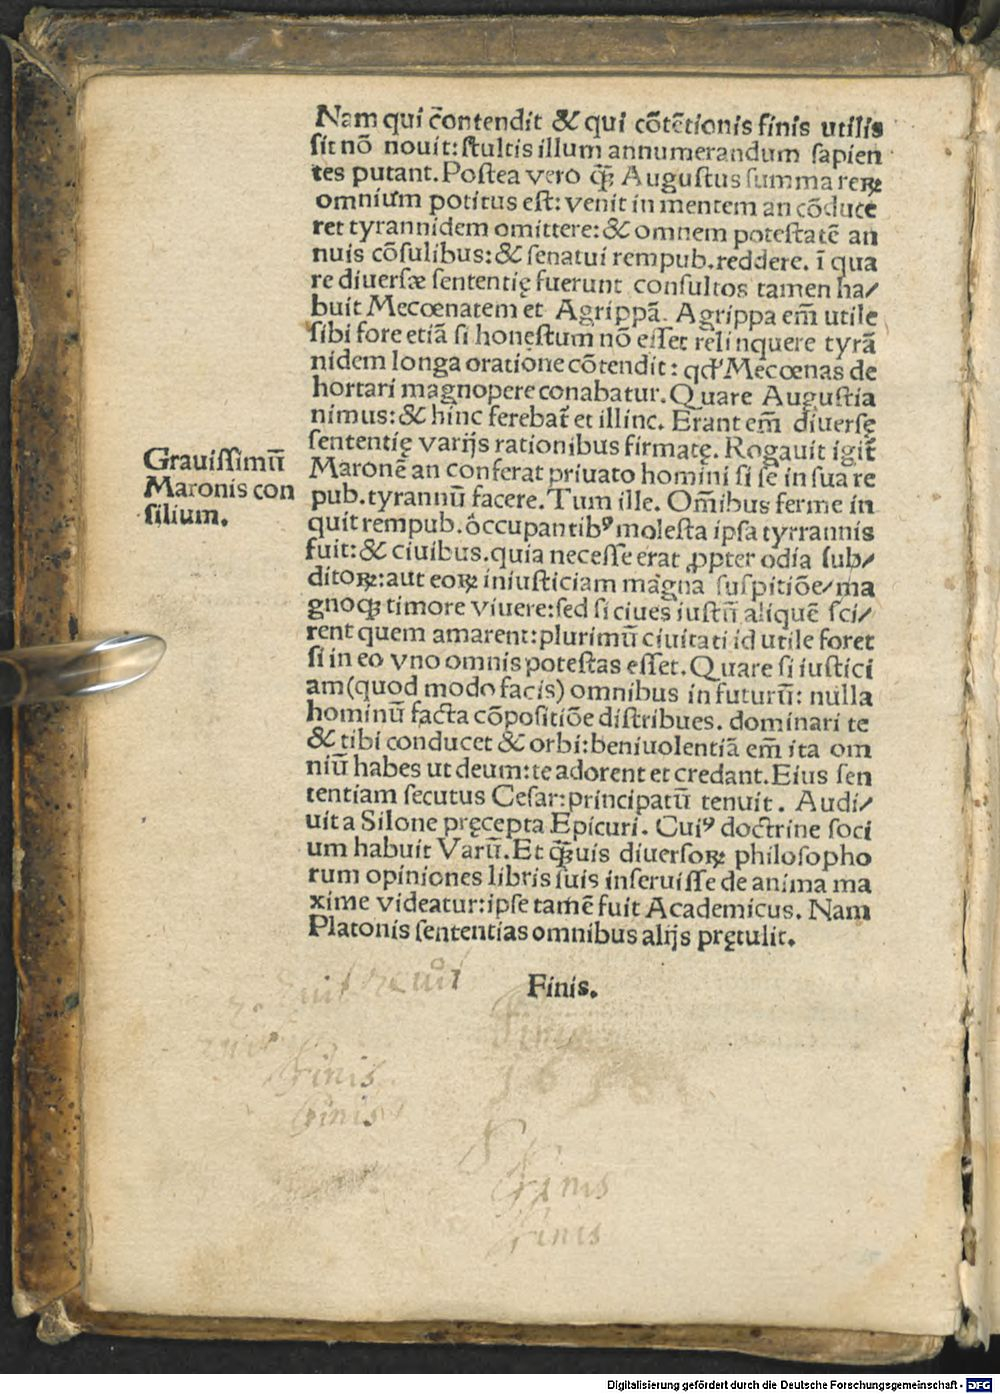 Nam qui c̄ontendit & qui cōtētionis finis utilis
ſit nō nouit: ſtultis illum annumerandum ſapien
tes putant. Poſtea vero ꝙ̄ Auguſtus ſumma reꝝ
omnium potitus eſt: venit in mentem an cōduce
ret tyrannidem omittere: & omnem poteſtatē an
nuis cōſulibus: & ſenatui rempub. reddere. ī qua
re diuerſæ ſententię fuerunt conſultos tamen ha/
buit Mecœnatem et Agrippā. Agrippa em̄ utile
ſibi fore etiā ſi honęſtum nō eſſet relinquere tyrā
nidem longa oratione cōtendit: qđ Mecœnas de
hortari magnopere conabatur. Quare Auguſti a
nimus: & hinc ferebat̄ et illinc. Erant em̄ diuerſę
ſententię varijs rationibus firmatę. Rogauit igit̄
Grauiſſimū
Maronis con
ſilium.
Maronē an conferat priuato homini ſi ſe in ſua re
pub. tyrannū facere. Tum ille. Om̄ibus ferme in
quit rempub. occupantibꝰ moleſta ipſa tyrrannis
fuit: & ciuibus. quia neceſſe erat ꝓpter odia ſub/
ditoꝝ: aut eoꝝ iniuſticiam magna ſuſpitiōe/ma
gnoqꝫ timore viuere: ſed ſi ciues iuſtū aliquē ſci/
rent quem amarent: plurimū ciuitati id utile foret
ſi in eo vno omnis poteſtas eſſet. Quare ſi iuſtici
am (quod modo facis) omnibus in futurū: nulla
hominū facta cōpoſitiōe diſtribues. dominari te
& tibi conducet & orbi: beniuolentiā em̄ ita om
niū habes ut deum: te adorent et credant. Eius ſen
tentiam ſecutus Ceſar: principatū tenuit. Audi/
uit a Silone pręcepta Epicuri. Cuiꝰ doctrine ſoci
um habuit Varū. Et ꝙ̄uis diuerſoꝝ philoſopho
rum opiniones libris ſuis inſeruiſſe de anima ma
xime videatur: ipſe tamē fuit Academicus. Nam
Platonis ſententias omnibus alijs prętulit.
Finis.
Finis
Finis
Finis
Finis
Finis
Digitalisierung gefördert durch die Deutsche Forschungsgemeinschaft - DFG